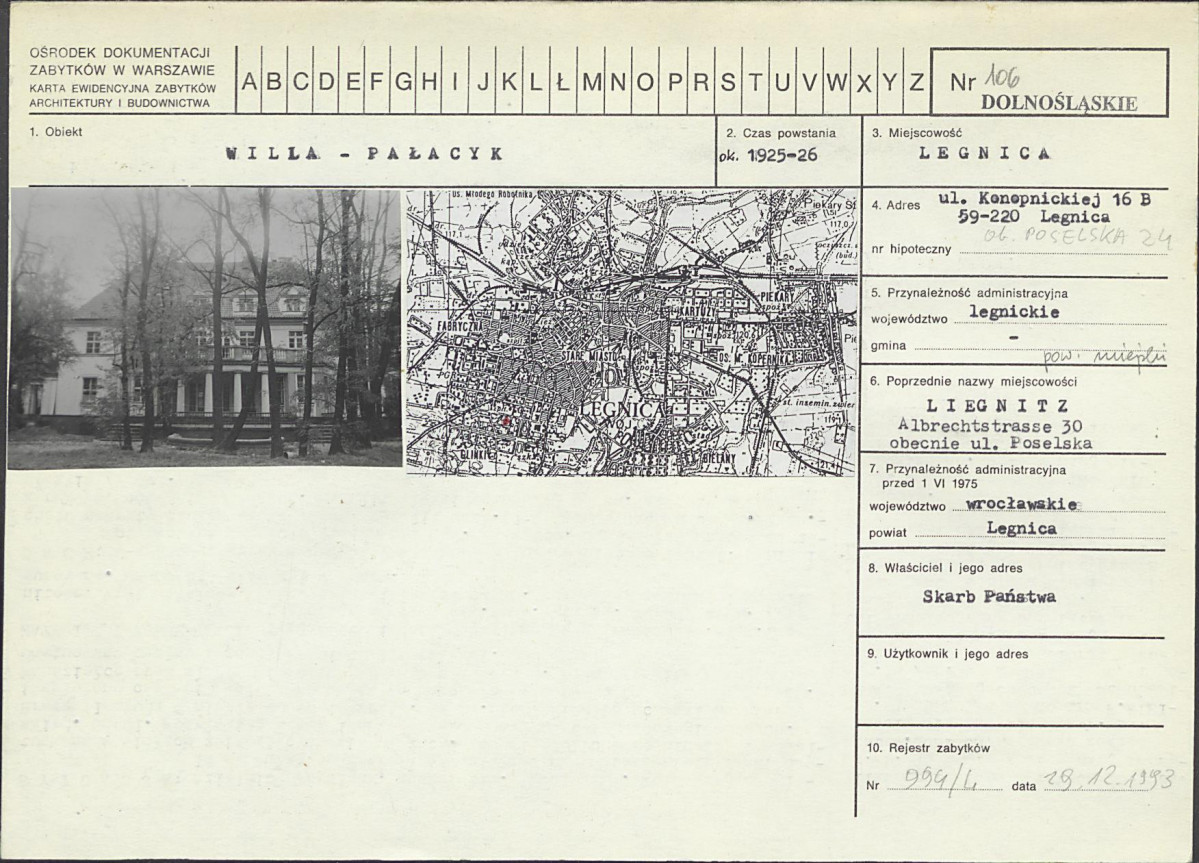 OŚRODEK DOKUMENTACJI
ZABYTKÓW W WARSZAWIE
KARTA EWIDENCYJNA ZABYTKÓW
ARCHITEKTURY I BUDOWNICTWA
A B C D E F G H I J K L Ł M N O P R S T U V W X Y Z
Nr 106
DOLNOŚLĄSKIE
1. Obiekt
WILLA - PAŁACYK
2. Czas powstania
ok. 1925-26
3. Miejscowość
LEGNICA
os. Młodego Robotnika
117,1
Piekary
117,0
(bud.)
FABRYCZNA
KARTUZY
PIEKARY
STARE MIASTO
OS. M. KOPERNIKA
LEGNICA
WOJ.
st. insemin. zwier
GLINKI
BIELANY
121,4
4. Adres ul. Konopnickiej 16 B
59-220 Legnica
ob. POSELSKA 24
nr hipoteczny
5. Przynależność administracyjna
województwo legnickie
gmina -
pow. miejski
6. Poprzednie nazwy miejscowości
LIEGNITZ
Albrechtstrasse 30
obecnie ul. Poselska
7. Przynależność administracyjna
przed 1 VI 1975
województwo wrocławskie
powiat Legnica
8. Właściciel i jego adres
Skarb Państwa
9. Użytkownik i jego adres
10. Rejestr zabytków
Nr 994/L data 29.12.1993